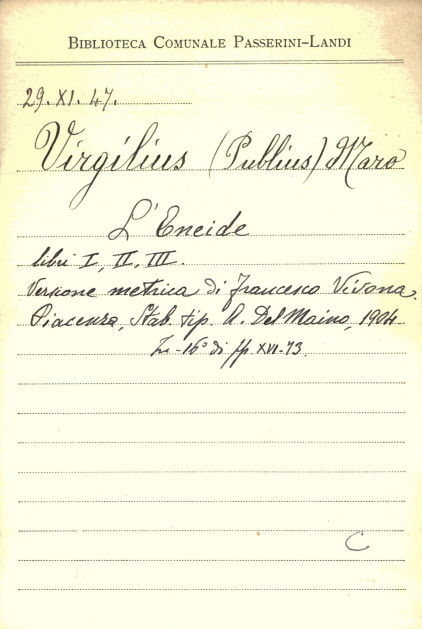 BIBLIOTECA COMUNALE PASSERINI-LANDI
29.XI.47.
Virgilius (Publius) Maro
L'Eneide
libri I, II, III.
Versione metrica di Francesco Vivona.
Piacenza, Stab. tip. A. Del Maino, 1904
In-16° di pp XVI-73.
C